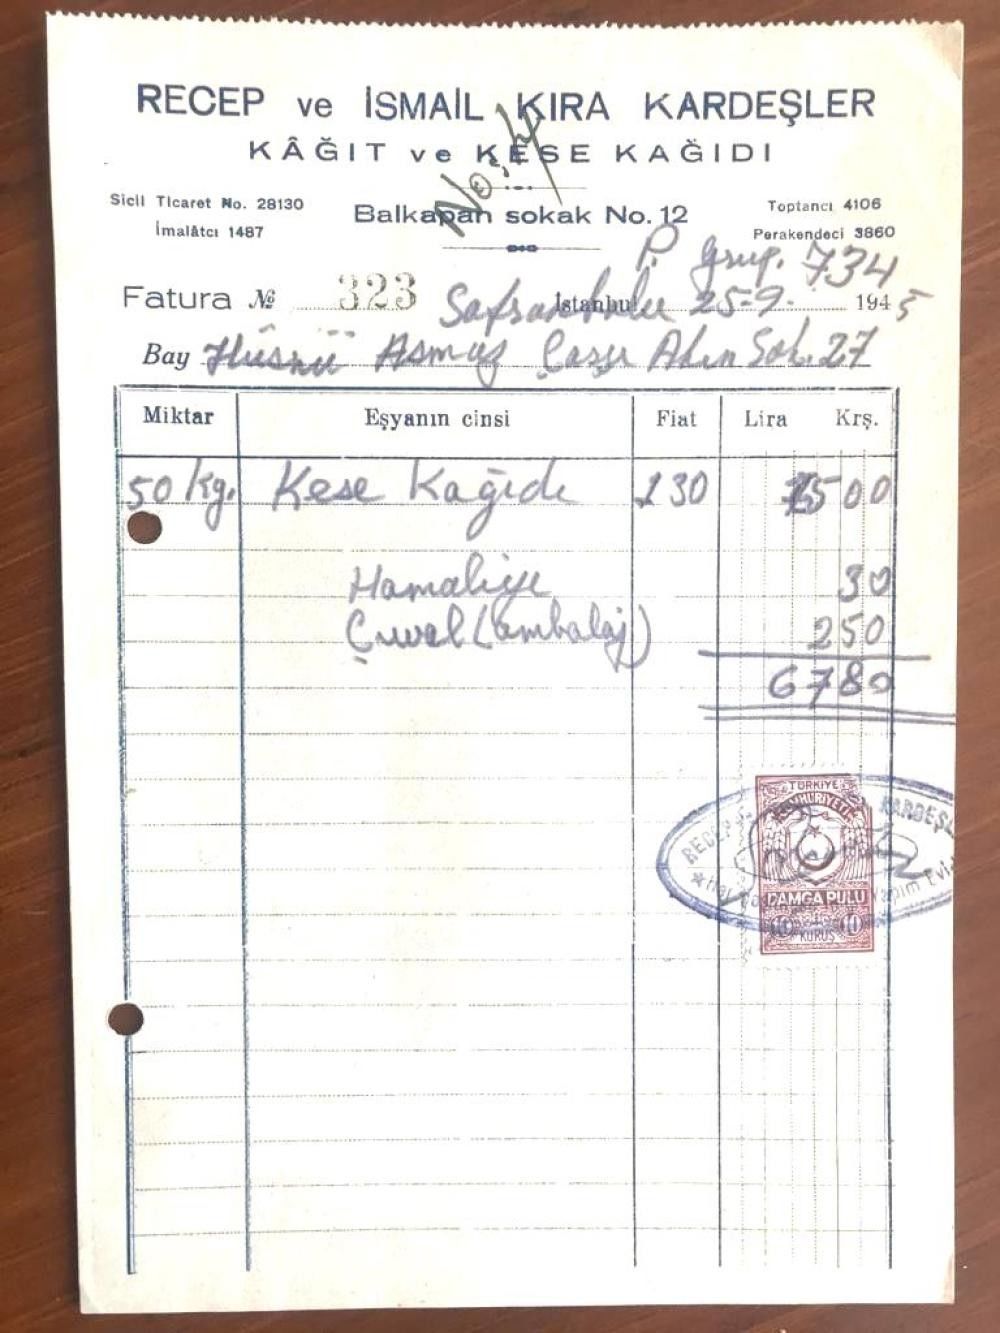 RECEP ve İSMAİL KIRA KARDEŞLER
KÂĞIT ve KESE KAĞIDI
Sicil Ticaret No. 28130
İmalâtcı 1487
Balkapan sokak No. 12
Toptancı 4106
Perakendeci 3860
P. grup. 734
Fatura № 323 Safranbolu İstanbul 25-9- 1945
Bay Hüsnü Asmaz Çarşı Akın Sok. 27
Miktar Eşyanın cinsi Fiat Lira Krş.
50 kg. Kese Kağıdı 130 6500
Hamaliye 30
Çuval (ambalaj) 250
6780
TÜRKİYE
CUMHURİYETİ
DAMGA PULU
10 10
KURUŞ
RECEP KARDEŞL